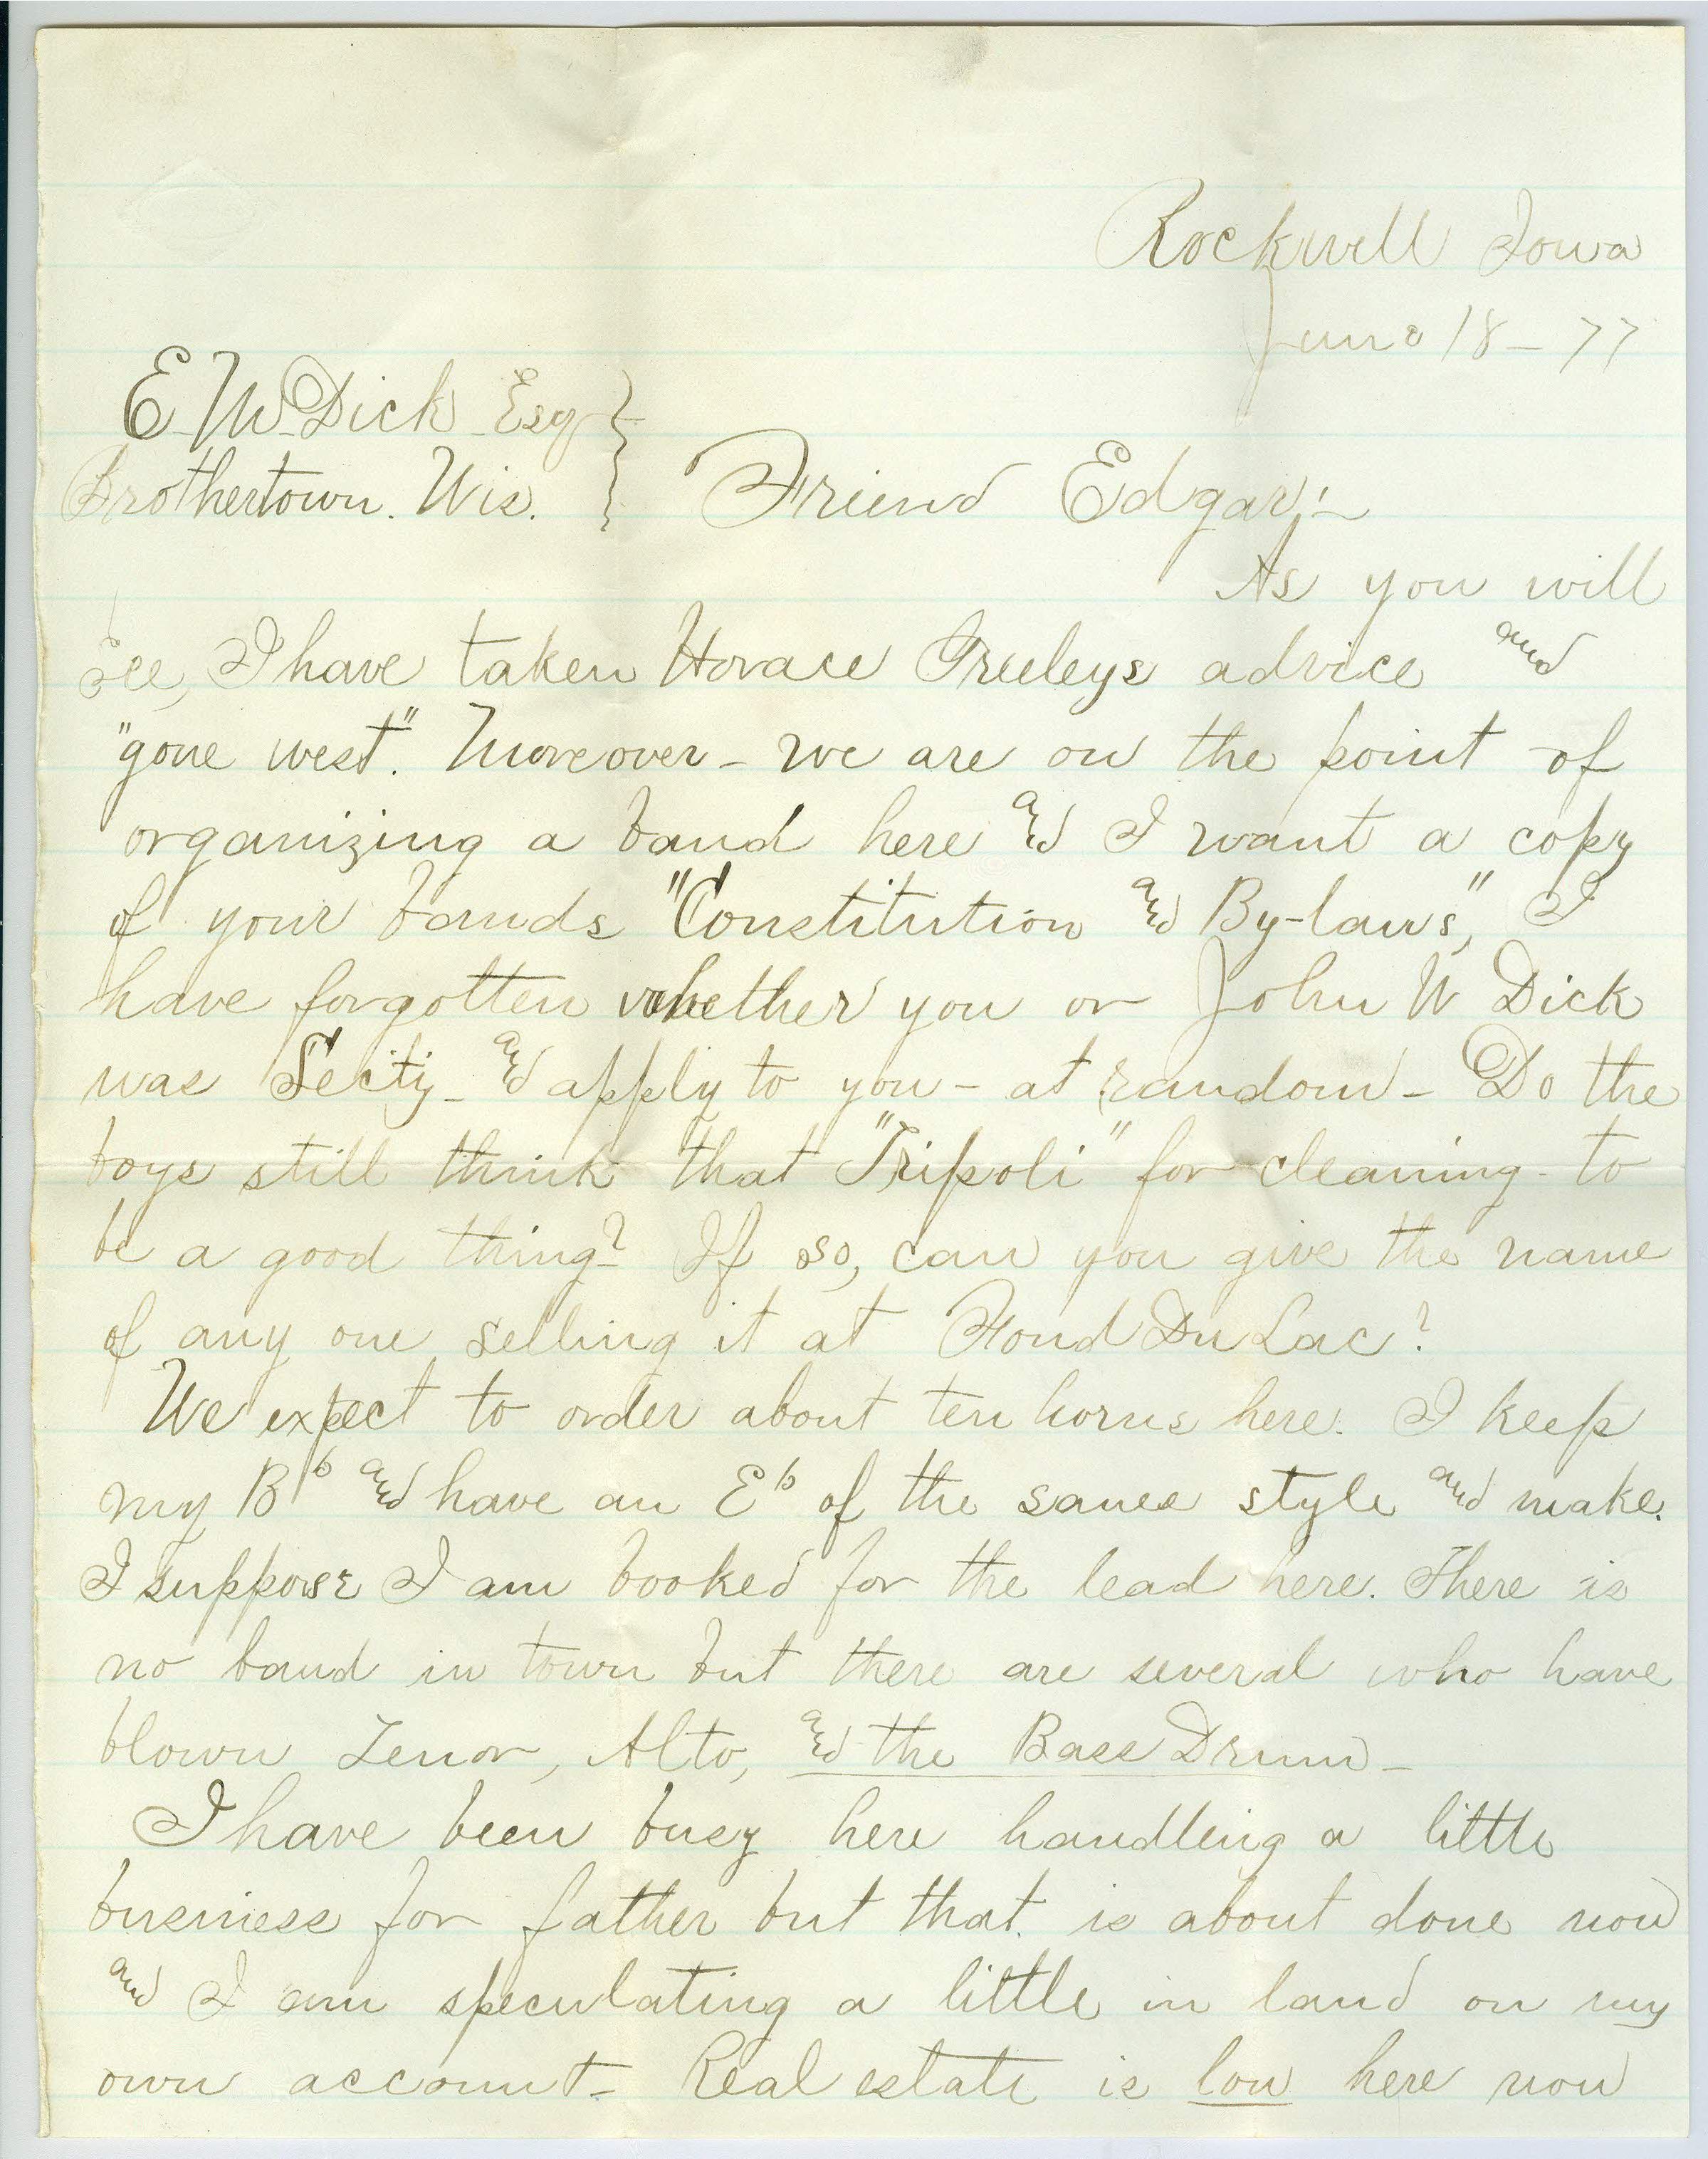 Rockwell Iowa
June 18 – 77
E. W. Dick Esq
Brothertown. Wis.
Friend Edgar:–
As you will
see, I have taken Horace Greeleys advice and
"gone west". Moreover – we are on the point of
organizing a band here and I want a copy
of your bands "Constitution and By-laws", I
have forgotten whether you or John W Dick
was Secty – and apply to you – at random – Do the
boys still think that "Tripoli" for cleaning to
be a good thing? If so, can you give the name
of any one selling it at Fond Du Lac?
We expect to order about ten horns here. I keep
my B♭ and have an E♭ of the same style and make.
I suppose I am booked for the lead here. There is
no band in town but there are several who have
blown Tenor, Alto, and the Bass Drum –
I have been busy here handling a little
business for father but that is about done now
and I am speculating a little in land on my
own account – Real estate is low here now